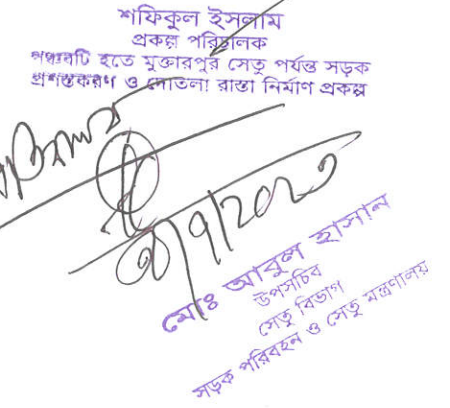 শফিকুল ইসলাম
প্রকল্প পরিচালক
পঞ্চবটি হতে মুক্তারপুর সেতু পর্যন্ত সড়ক
প্রশস্তকরণ ও দোতলা রাস্তা নির্মাণ প্রকল্প
মোঃ আবুল হাসান
উপসচিব
সেতু বিভাগ
সড়ক পরিবহন ও সেতু মন্ত্রণালয়